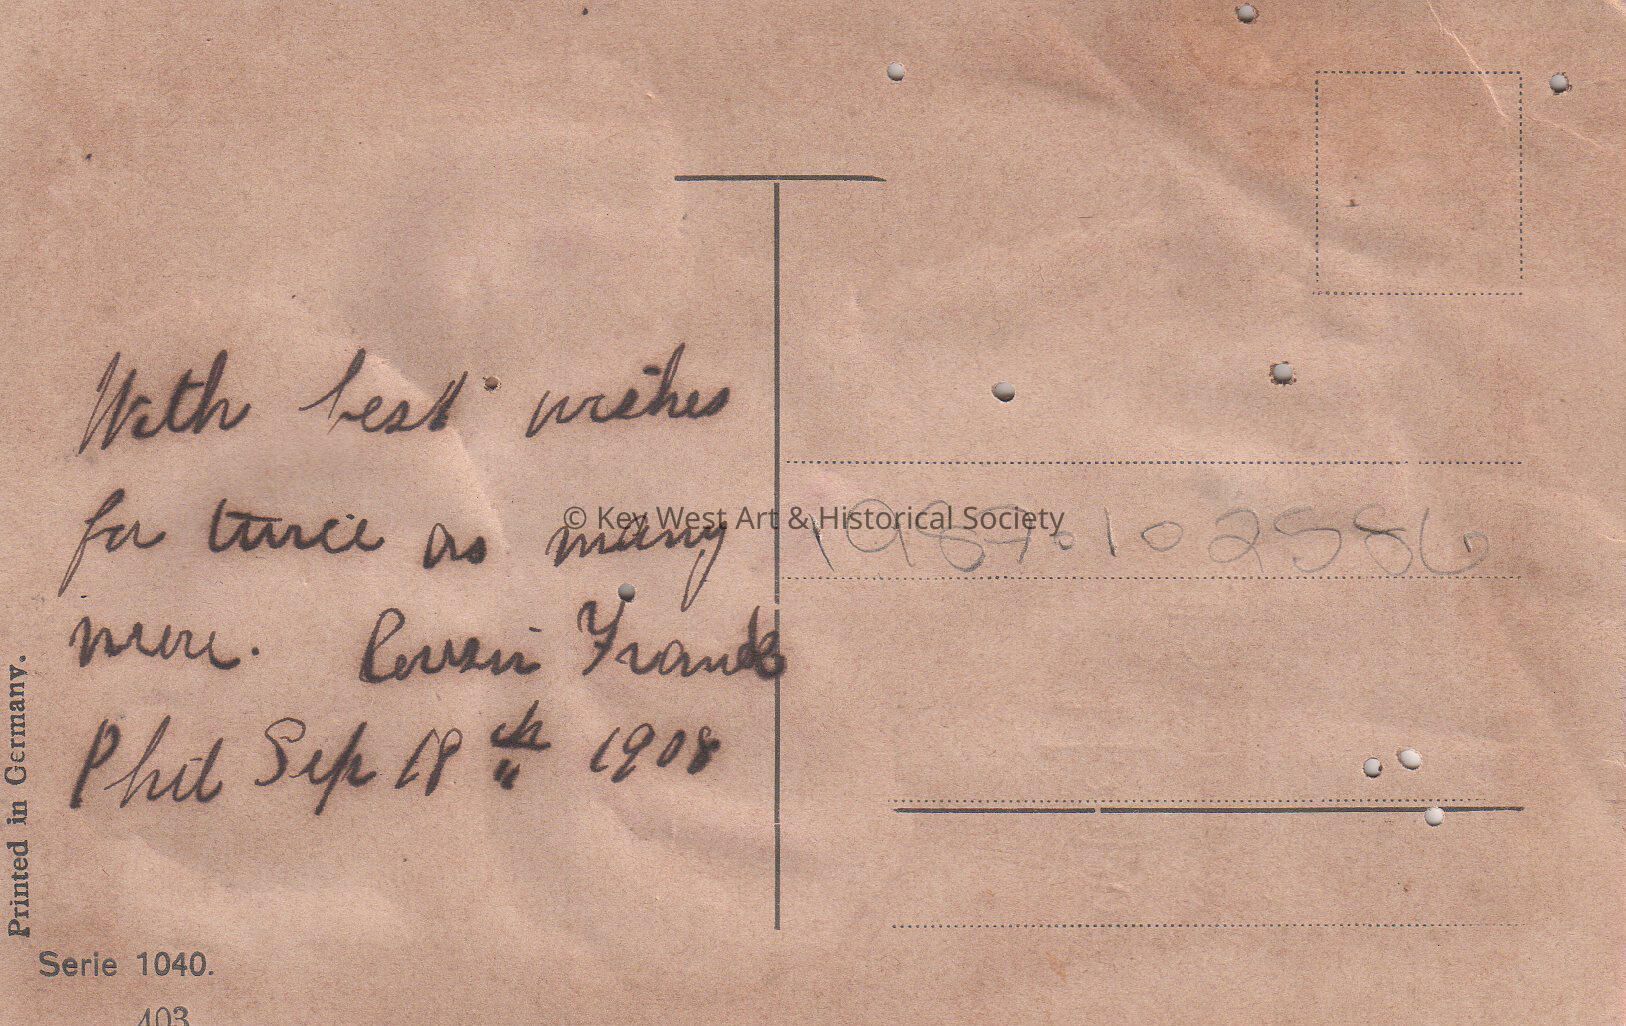 With best wishes
for twice as many
more. Cousin Frank
Phil Sep 18th 1908
© Key West Art & Historical Society
1987.10.2586
Printed in Germany.
Serie 1040.
403